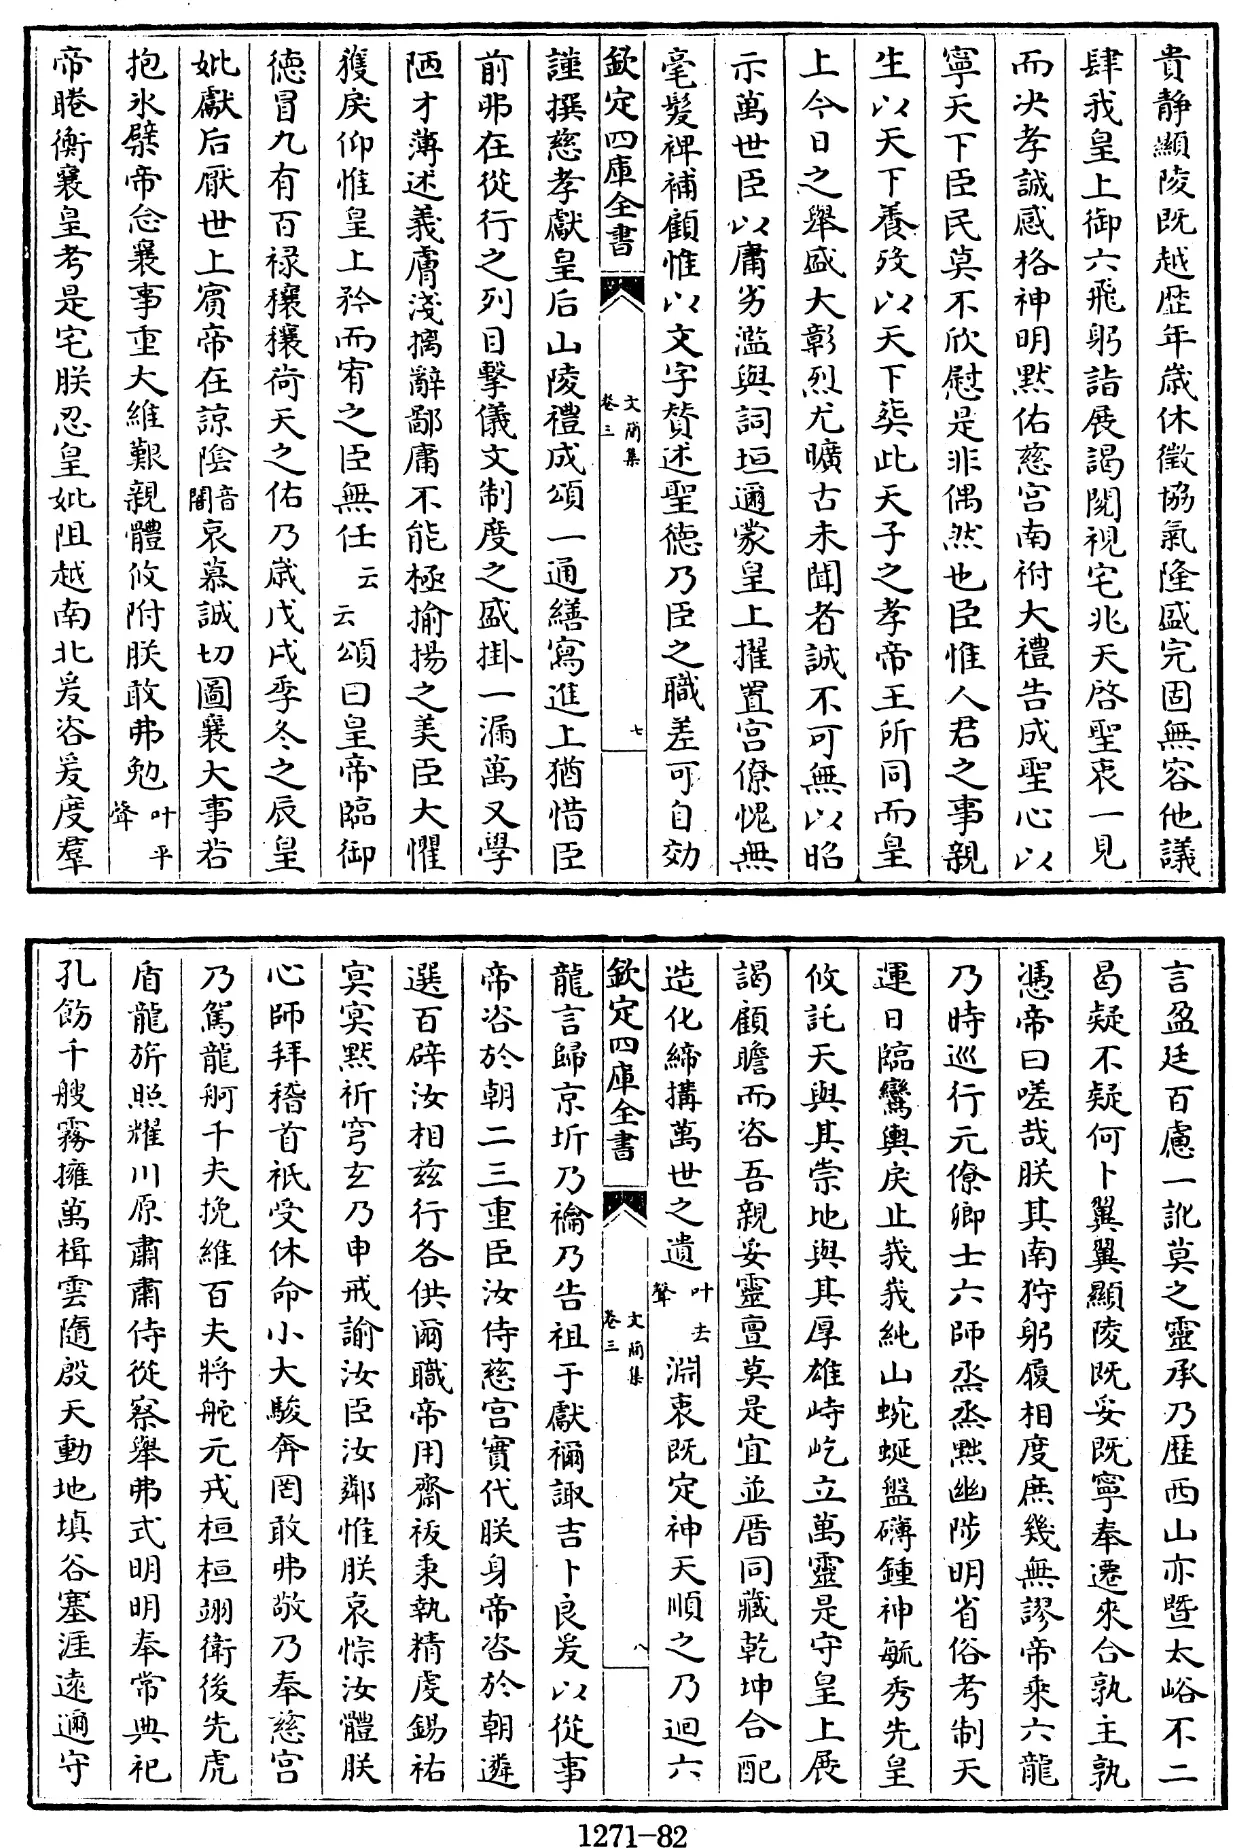 貴靜顯陵既越歴年歳休徵協氣隆盛完固無容他議
肆我皇上御六飛躬詣展謁閱視宅兆天啓聖衷一見
而决孝誠感格神明黙佑慈宫南祔大禮告成聖心以
寧天下臣民莫不欣慰是非偶然也臣惟人君之事親
生以天下養殁以天下葬此天子之孝帝王所同而皇
上今日之舉盛大彰烈尤曠古未聞者誠不可無以昭
示萬世臣以庸劣濫與詞垣邇蒙皇上擢置宫僚愧無
毫髮禆補顧惟以文字賛述聖徳乃臣之職差可自効
欽定四庫全書
文簡集
卷三
七
謹撰慈孝獻皇后山陵禮成頌一通繕寫進上猶惜臣
前弗在從行之列目擊儀文制度之盛掛一漏萬又學
陋才薄述義膚淺摛辭鄙庸不能極揄揚之美臣大懼
獲戾仰惟皇上矜而宥之臣無任云云頌曰皇帝臨御
徳冒九有百禄穰穰荷天之佑乃歳戊戌季冬之辰皇
妣獻后厭世上賓帝在諒陰音闇哀慕誠切圖襄大事若
抱氷檗帝念襄事重大維艱親體攸附朕敢弗勉叶平聲
帝睠衡襄皇考是宅朕忍皇妣阻越南北爰咨爰度羣
言盈廷百慮一訛莫之靈承乃歴西山亦暨太峪不二
曷疑不疑何卜翼翼顯陵既妥既寧奉遷來合孰主孰
憑帝曰嗟哉朕其南狩躬履相度庶幾無謬帝乘六龍
乃時巡行元僚卿士六師烝烝黜幽陟明省俗考制天
運日臨鸞輿戻止峩峩純山蜿蜒盤礴鍾神毓秀先皇
攸託天與其崇地與其厚雄峙屹立萬靈是守皇上展
謁顧瞻而咨吾親妥靈亶莫是宜並厝同藏乾坤合配
造化締搆萬世之遺叶去聲淵衷既定神天順之乃迴六
欽定四庫全書
文簡集
卷三
八
龍言歸京圻乃禴乃告祖于獻禰諏吉卜良爰以從事
帝咨於朝二三重臣汝侍慈宫實代朕身帝咨於朝遴
選百辟汝相兹行各供爾職帝用齋袚秉執精虔錫祐
冥冥黙祈穹玄乃申戒諭汝臣汝鄰惟朕哀悰汝體朕
心師拜稽首祇受休命小大駿奔罔敢弗敬乃奉慈宫
乃駕龍舸千夫挽維百夫將舵元戎桓桓翊衛後先虎
盾龍旂照耀川原肅肅侍從察舉弗式明明奉常典祀
孔飭千艘霧擁萬楫雲隨殷天動地填谷塞涯逺邇守
1271-82